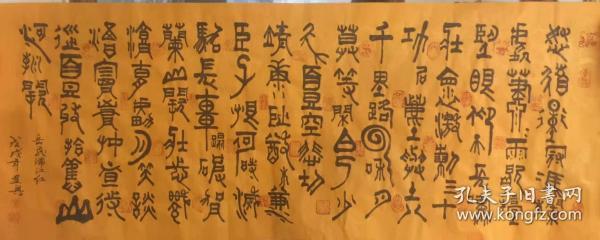 怒髮衝冠憑欄
處瀟瀟雨歇抬
望眼仰天長嘯
壯懷激烈三十
功名塵與土八
千里路雲和月
莫等閒白少
年頭空悲切
靖康恥猶未
臣子恨何時滅
駕長車踏破賀
蘭山闕壯志飢
餐胡虜肉笑談
渴飲匈奴血待
從頭收拾舊山
河朝天闕
岳飛滿江紅
戊戌年
孔夫子旧书网
www.kongfz.com